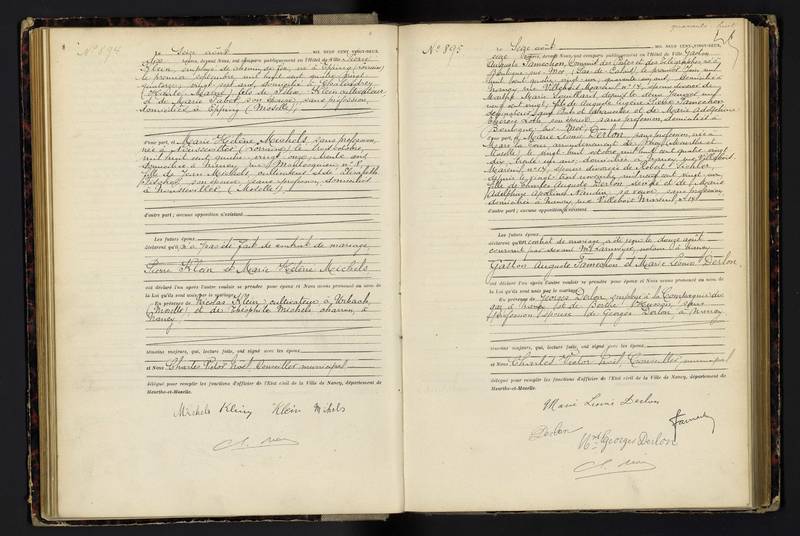 N° 894
Le Seize août MIL NEUF CENT VINGT-DEUX,
dix heures, devant Nous, ont comparu publiquement en l'Hôtel de Ville Pierre
Klein, employé de chemin de fer, né à Epping (Lorraine)
le premier septembre mil huit cent quatre vingt
quatorze, vingt sept ans, domicilié à Chalindrey
(Haute Marne), fils de Klein cultivateur
et de Marie son épouse, sans profession,
domiciliés à Epping (Moselle),
d'une part, et Marie Hélène Michels, sans profession,
née à (Lorraine) le trois octobre
mil huit cent quatre vingt onze, trente ans
domiciliée à Nancy, rue n° 8,
fille de Jean Michels, cultivateur et de Elisabeth
son épouse, sans profession, domiciliés
à (Moselle)
d'autre part; aucune opposition n'existant
Les futurs époux
déclarent qu'il n'a pas été fait de contrat de mariage,
Pierre Klein et Marie Hélène Michels
ont déclaré l'un après l'autre vouloir se prendre pour époux et Nous avons prononcé au nom de
la Loi qu'ils sont unis par le mariage.
En présence de Nicolas Klein, cultivateur à Urbach
(Moselle), et de Théophile Michels, charron, à
Nancy
témoins majeurs, qui, lecture faite, ont signé avec les époux
et Nous Charles Victor Noël, Conseiller municipal
délégué pour remplir les fonctions d'officier de l'Etat civil de la Ville de Nancy, département de
Meurthe-et-Moselle.
Michels Klein Klein Michels
quarante huit
48
N° 895
Le Seize août MIL NEUF CENT VINGT-DEUX,
seize heures, devant Nous, ont comparu publiquement en l'Hôtel de Ville Gaston
Auguste Jamechon, Commis des Postes et des télégraphes, né à
Boulogne sur Mer (Pas de Calais), le premier Juin mil
huit cent quatre vingt un, quarante un ans, domicilié à
Nancy rue Villebois Mareuil n° 14, époux divorcé de
Marie depuis le
vingt, fils de Auguste Jamechon
et de Marie Adolphine
son épouse, sans profession, domiciliés à
Boulogne sur Mer,
d'une part, et Marie Léonie Derlon, sans profession, née à
arrondissement de Briey (Meurthe et
Moselle) le vingt huit octobre mil huit cent quatre vingt
dix, trente un ans, domiciliée à Nancy, rue Villebois
Mareuil n° 14, épouse divorcée de Robert
depuis le vingt trois novembre mil neuf cent vingt un,
fille de Charles Auguste Derlon, décédé et de Marie
Adolphine Naudin, sa veuve, sans profession,
domiciliée à Nancy, rue Villebois Mareuil, n° 14
d'autre part; aucune opposition n'existant
Les futurs époux
déclarent qu'un contrat de mariage a été reçu le douze août
courant par devant Me notaire à Nancy
Gaston Auguste Jamechon et Marie Léonie Derlon
ont déclaré l'un après l'autre vouloir se prendre pour époux et Nous avons prononcé au nom de
la Loi qu'ils sont unis par le mariage.
En présence de Georges Derlon, employé à la Compagnie du
gaz à Nancy, et de Berthe sans
profession, épouse de Georges Derlon, à Nancy
témoins majeurs, qui, lecture faite, ont signé avec les époux
et Nous Charles Victor Noël, Conseiller municipal
délégué pour remplir les fonctions d'officier de l'Etat civil de la Ville de Nancy, département de
Meurthe-et-Moselle.
Marie Léonie Derlon
Derlon
Georges Derlon